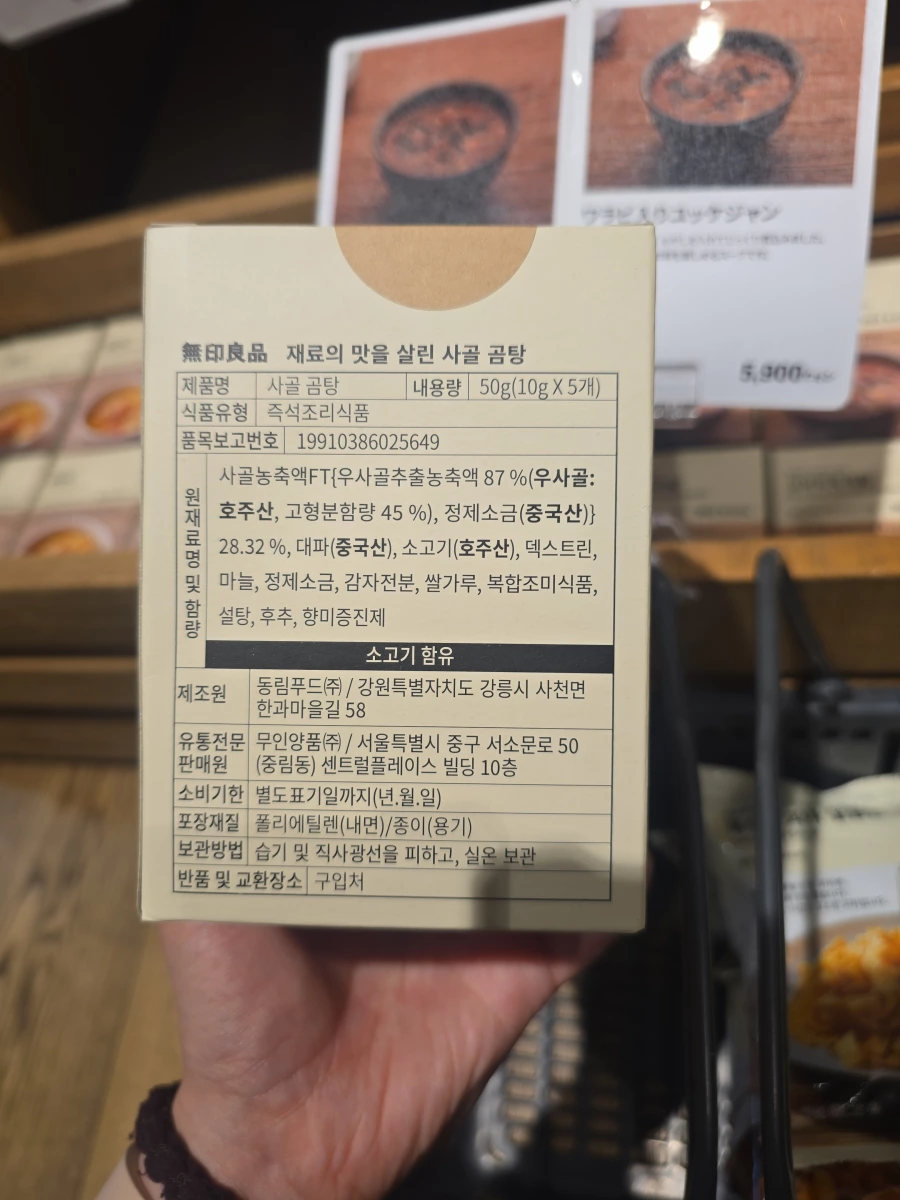 ワラビ入りユッケジャン
5,900ウォン
無印良品 재료의 맛을 살린 사골 곰탕
제품명 사골 곰탕 내용량 50g(10g X 5개)
식품유형 즉석조리식품
품목보고번호 19910386025649
원재료명 및 함량
사골농축액FT{우사골추출농축액 87 %(우사골:
호주산, 고형분함량 45 %), 정제소금(중국산)}
28.32 %, 대파(중국산), 소고기(호주산), 덱스트린,
마늘, 정제소금, 감자전분, 쌀가루, 복합조미식품,
설탕, 후추, 향미증진제
소고기 함유
제조원 동림푸드㈜ / 강원특별자치도 강릉시 사천면
한과마을길 58
유통전문 무인양품㈜ / 서울특별시 중구 서소문로 50
판매원 (중림동) 센트럴플레이스 빌딩 10층
소비기한 별도표기일까지(년.월.일)
포장재질 폴리에틸렌(내면)/종이(용기)
보관방법 습기 및 직사광선을 피하고, 실온 보관
반품 및 교환장소 구입처